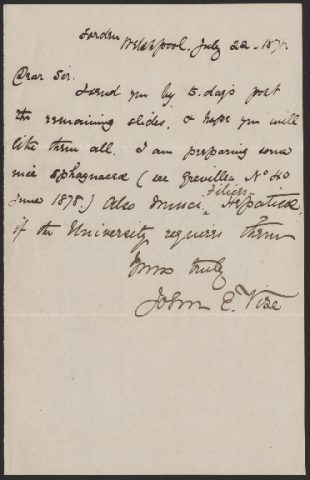 Forden
Welshpool. July 22. 1878.
Dear Sir.
I send you by to day's post
the remaining slides, & hope you will
like them all. I am preparing some
nice Sphagnaceæ (see Grevillea No 40
June 1878.) Also Musci, Filices, Hepaticæ,
if the University requires them
Yours truly
John E. Vize